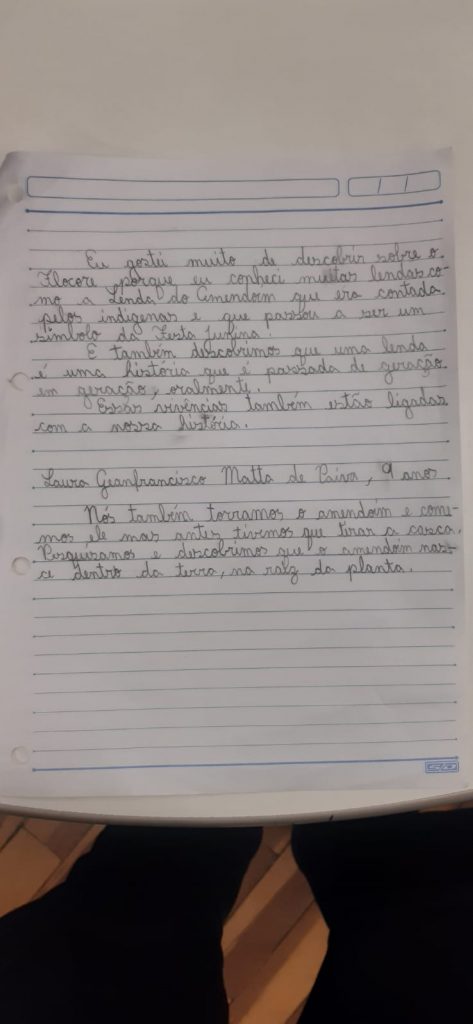 / /
Eu gostei muito de descobrir sobre o
Flocore porque eu conheci muitas lendas co-
mo a Lenda do Amendoim que era contada
pelos indígenas e que passou a ser um
símbolo da Festa Junina.
E também descobrimos que uma lenda
é uma história que é passada de geração
em geração, oralmente.
Essas vivências também estão ligadas
com a nossa história.
Laura Gianfrancisco Matta de Paiva, 9 anos
Nós também torramos o amendoim e come-
mos ele mas antes tivemos que tirar a casca.
Pesquisamos e descobrimos que o amendoim nas-
ce dentro da terra, na raíz da planta.